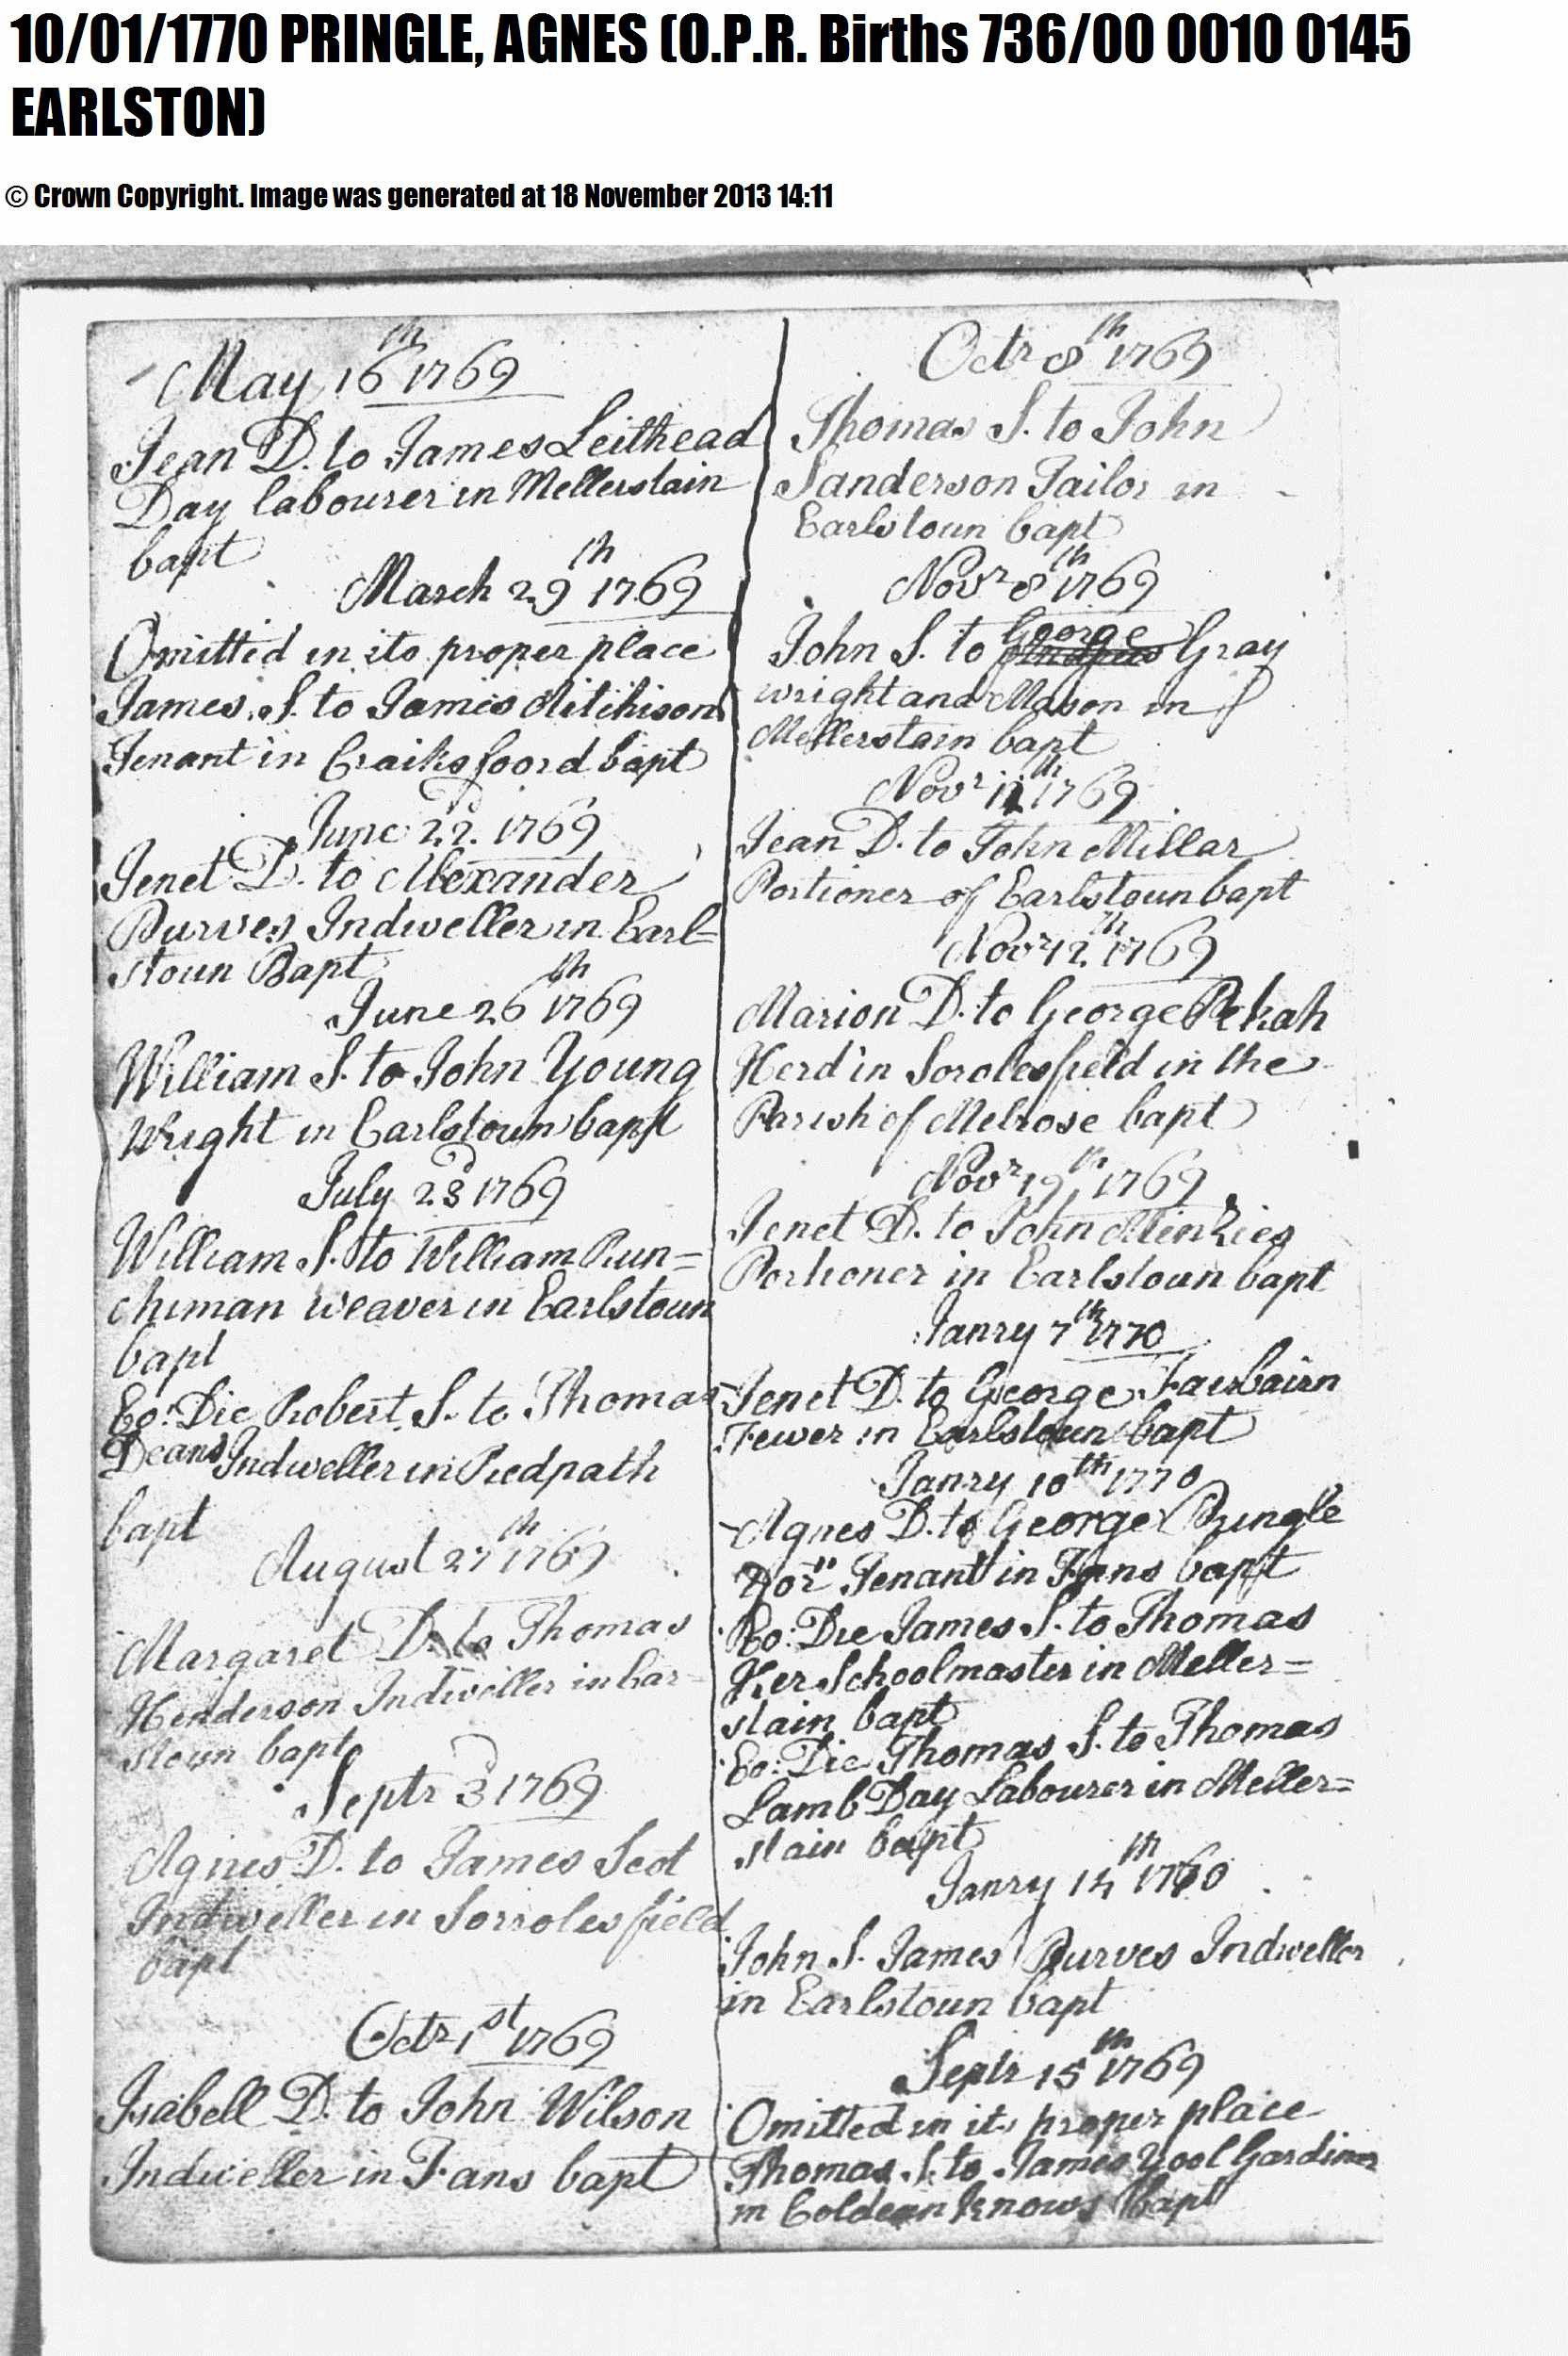 10/01/1770 PRINGLE, AGNES (O.P.R. Births 736/00 0010 0145
EARLSTON)
© Crown Copyright. Image was generated at 18 November 2013 14:11
May 16th 1769
Jean D. to James Leithead
Day labourer in Mellerstain
bapt
March 29th 1769
Omitted in its proper place
James S. to James Aitchison
Tenant in Craiksfoord bapt
June 22d 1769
Jenet D. to Alexander
Purves Indweller in Earl=
stoun Bapt
June 26th 1769
William S. to John Young
Wright in Earlstoun bapt
July 23d 1769
William S. to William Run=
chiman weaver in Earlstoun
bapt
Eo: Die Robert S. to Thomas
Deans Indweller in Redpath
bapt
August 27th 1769
Margaret D. to Thomas
Henderson Indweller in Ear-
stoun bapt
Septr 3d 1769
Agnes D. to James Scot
Indweller in Sorrolesfield
bapt
Octr 1st 1769
Isabell D. to John Wilson
Indweller in Fans bapt
Octr 8th 1769
Thomas S. to John
Sanderson Tailor in
Earlstoun bapt
Novr 8th 1769
John S. to George Gray
wright and Mason in
Mellerstain bapt
Novr 11th 1769
Jean D. to John Millar
Portioner of Earlstoun bapt
Novr 12th 1769
Marion D. to George
Herd in Sorolesfield in the
Parish of Melrose bapt
Novr 19th 1769
Jenet D. to John Minzies
Portioner in Earlstoun bapt
Janry 7th 1770
Jenet D. to George Fairbairn
Fewer in Earlstoun bapt
Janry 10th 1770
Agnes D. to George Pringle
Tenant in Fans bapt
Eo: Die James S. to Thomas
Ker Schoolmaster in Meller=
stain bapt
Eo: Die Thomas S. to Thomas
Lamb Day Labourer in Meller=
stain bapt
Janry 14th 1770
John S. James Purves Indweller
in Earlstoun bapt
Septr 15th 1769
Omitted in its proper place
Thomas S. to James Yool Gardiner
in Coldeanknows Bapt